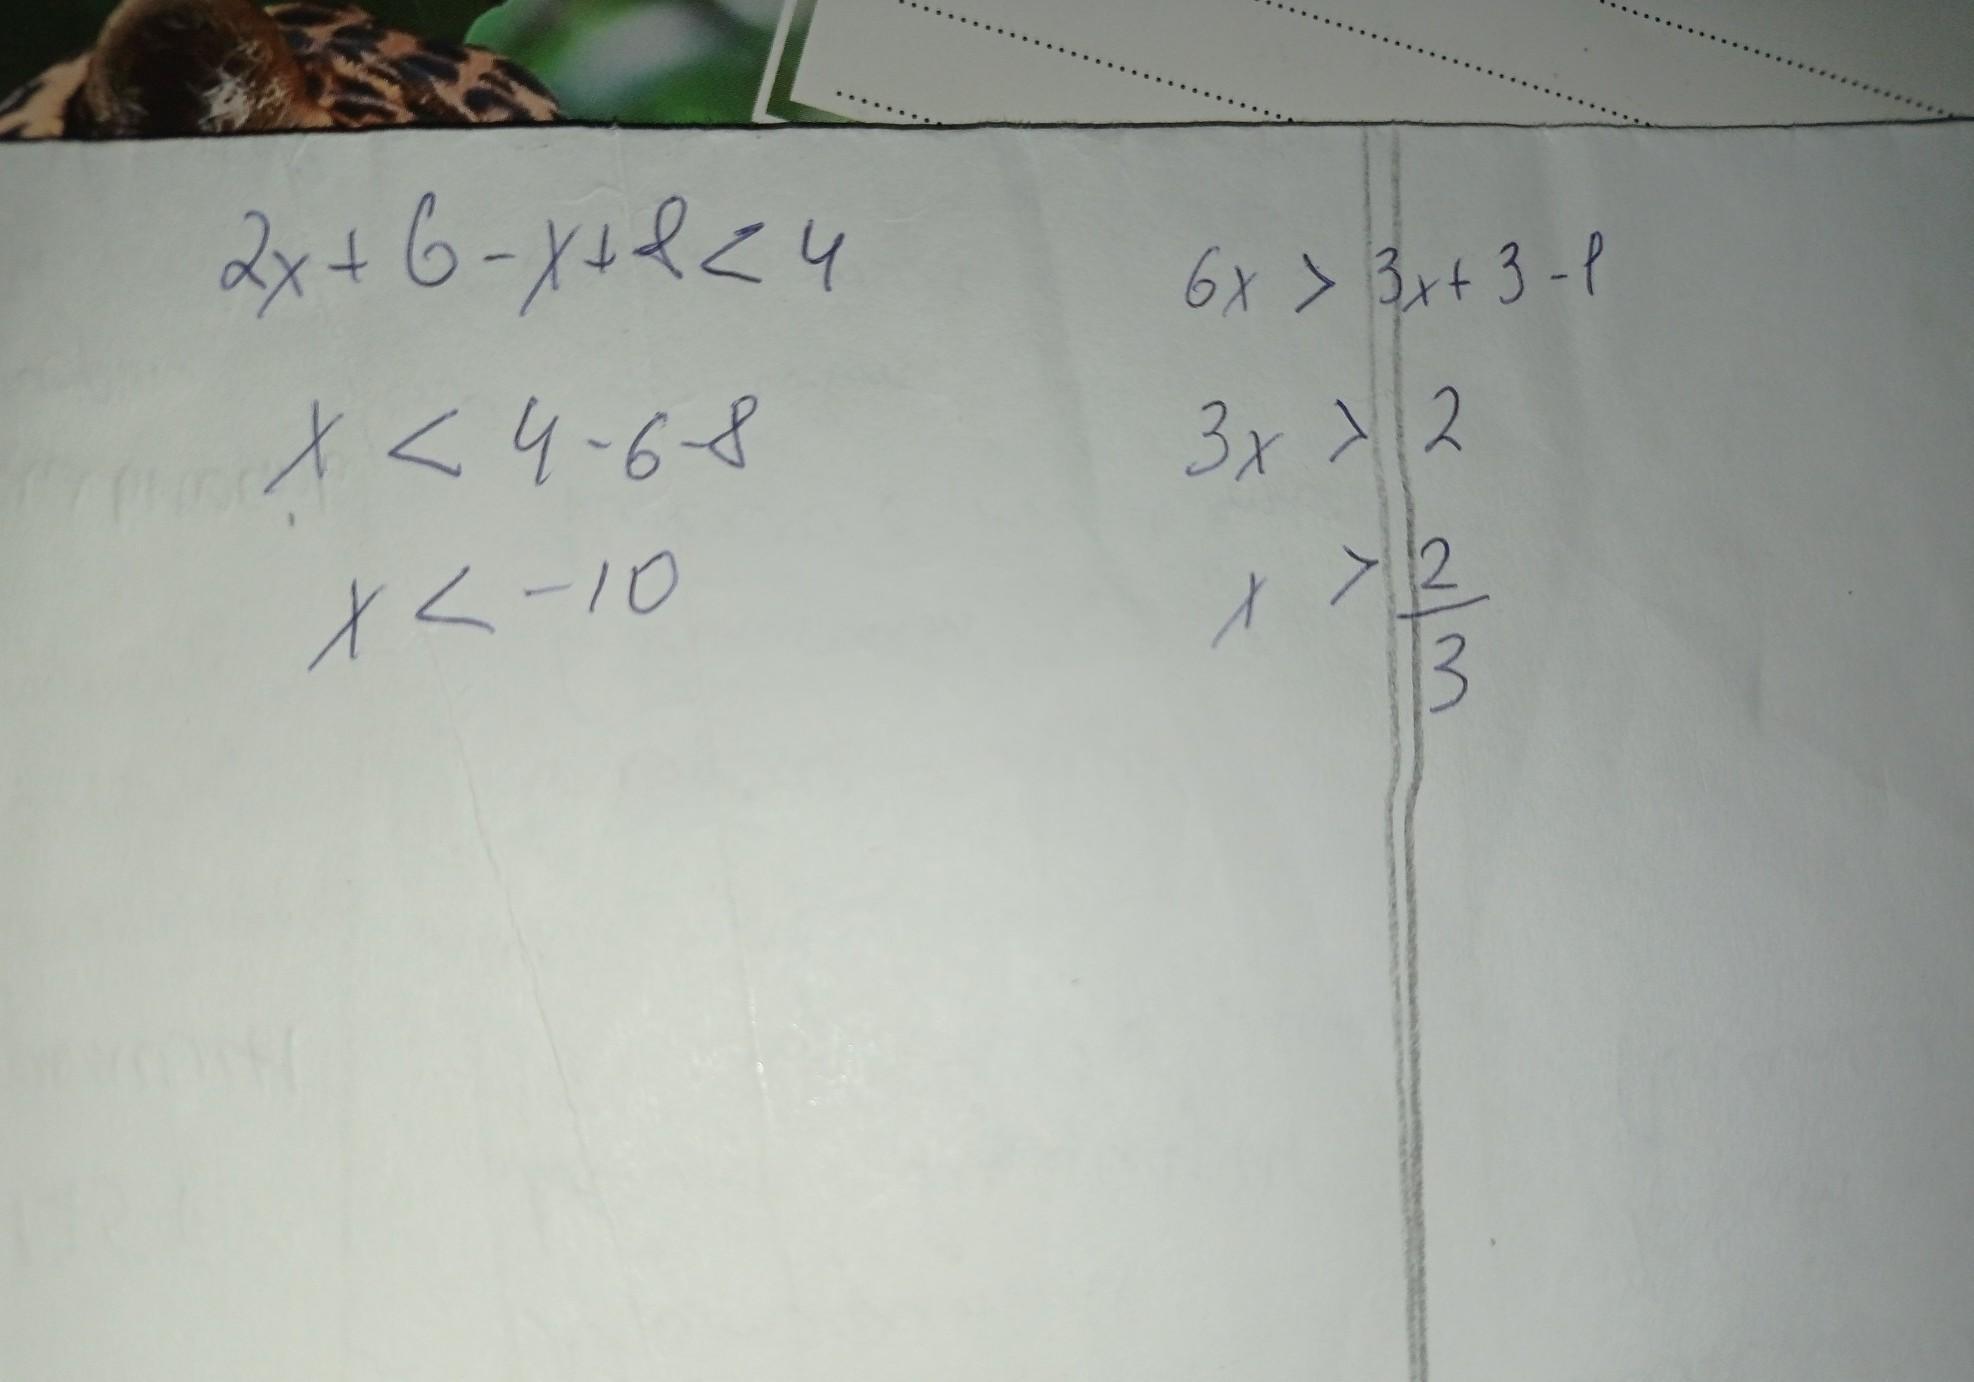 2x+6-x+8<4
x < 4-6-8
x < -10
6x > 3x+3-1
3x > 2
x > 2/3